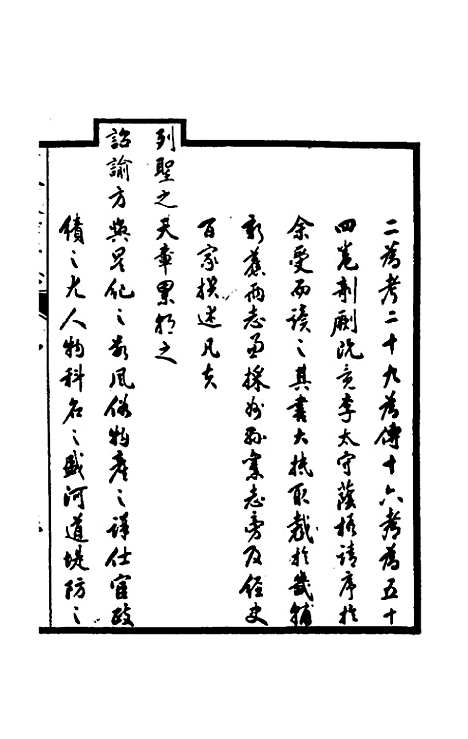 二為考二十九為傳十六考為五十
四卷剞劂既竟李太守蔭梧請序於
余受而讀之其書大抵取裁於畿輔
新舊兩志忝採州縣案志旁及經史
百家撰述凡夫
列聖之天章累朝之
詔諭方輿星紀之若風俗物產之詳仕宦政
績之尤人物科名之盛河道堤防之